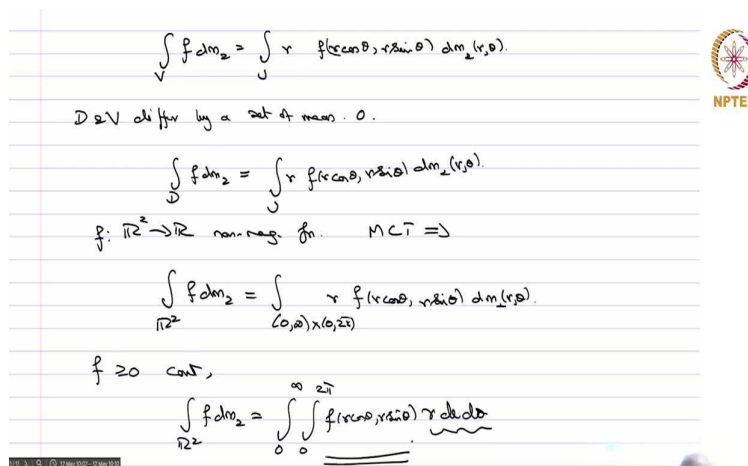 ∫_V f dm₂ = ∫_U r f(r cos θ, r sin θ) dm₂(r,θ).
D & V differ by a set of meas. 0.
∫_D f dm₂ = ∫_U r f(r cos θ, r sin θ) dm₂(r,θ).
f: ℝ² → ℝ non-neg. fn. MCT ⇒
∫_ℝ² f dm₂ = ∫_(0,∞)×(0,2π) r f(r cos θ, r sin θ) dm₂(r,θ).
f ≥ 0 cont,
∫_ℝ² f dm₂ = ∫₀^∞ ∫₀^2π f(r cos θ, r sin θ) r dr dθ
NPTEL